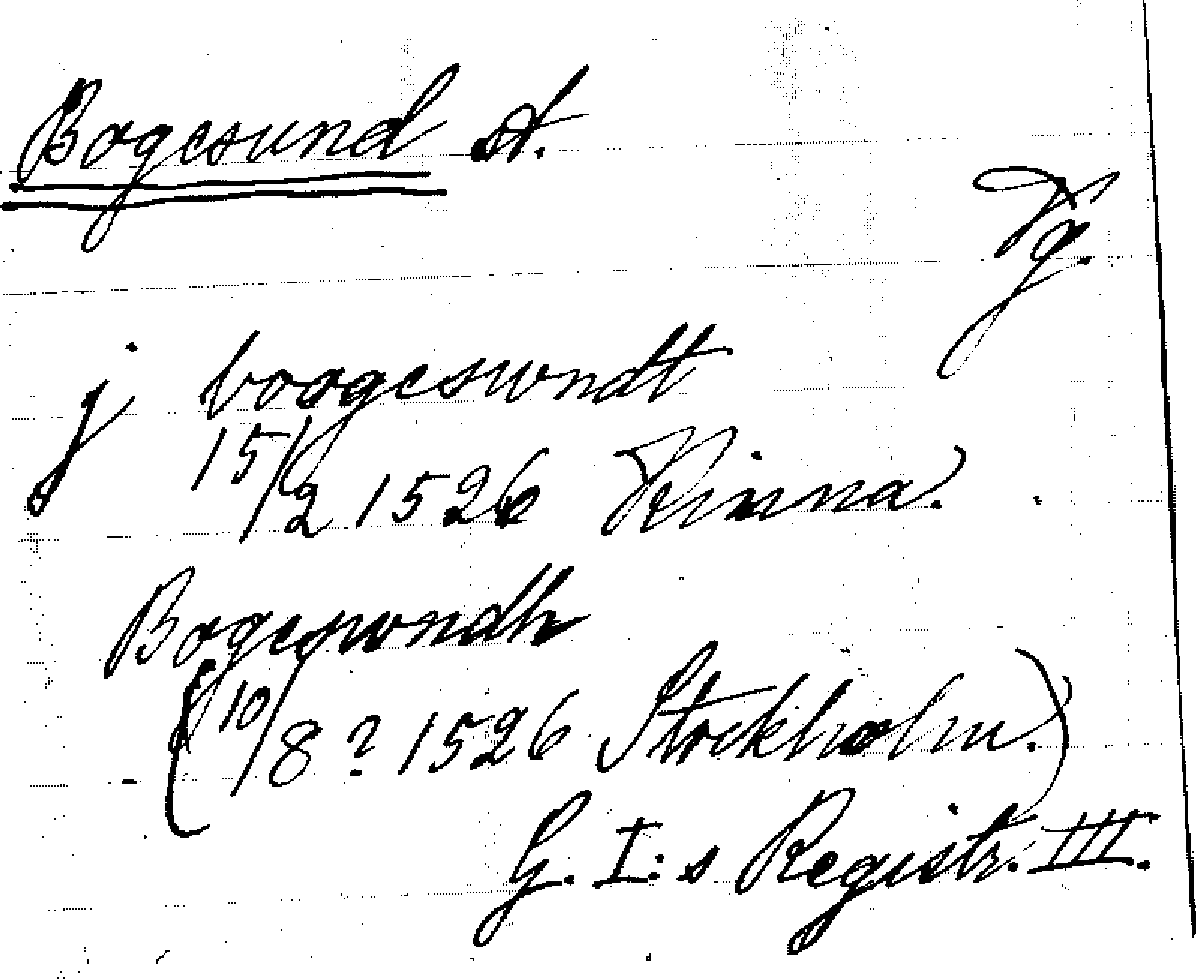 Bogesund st.
Vg.
j boogeswndt
15/2 1526 Kinna.
Bogeswndh
(10/8? 1526 Stockholm.)
G. I:s Registr. III.